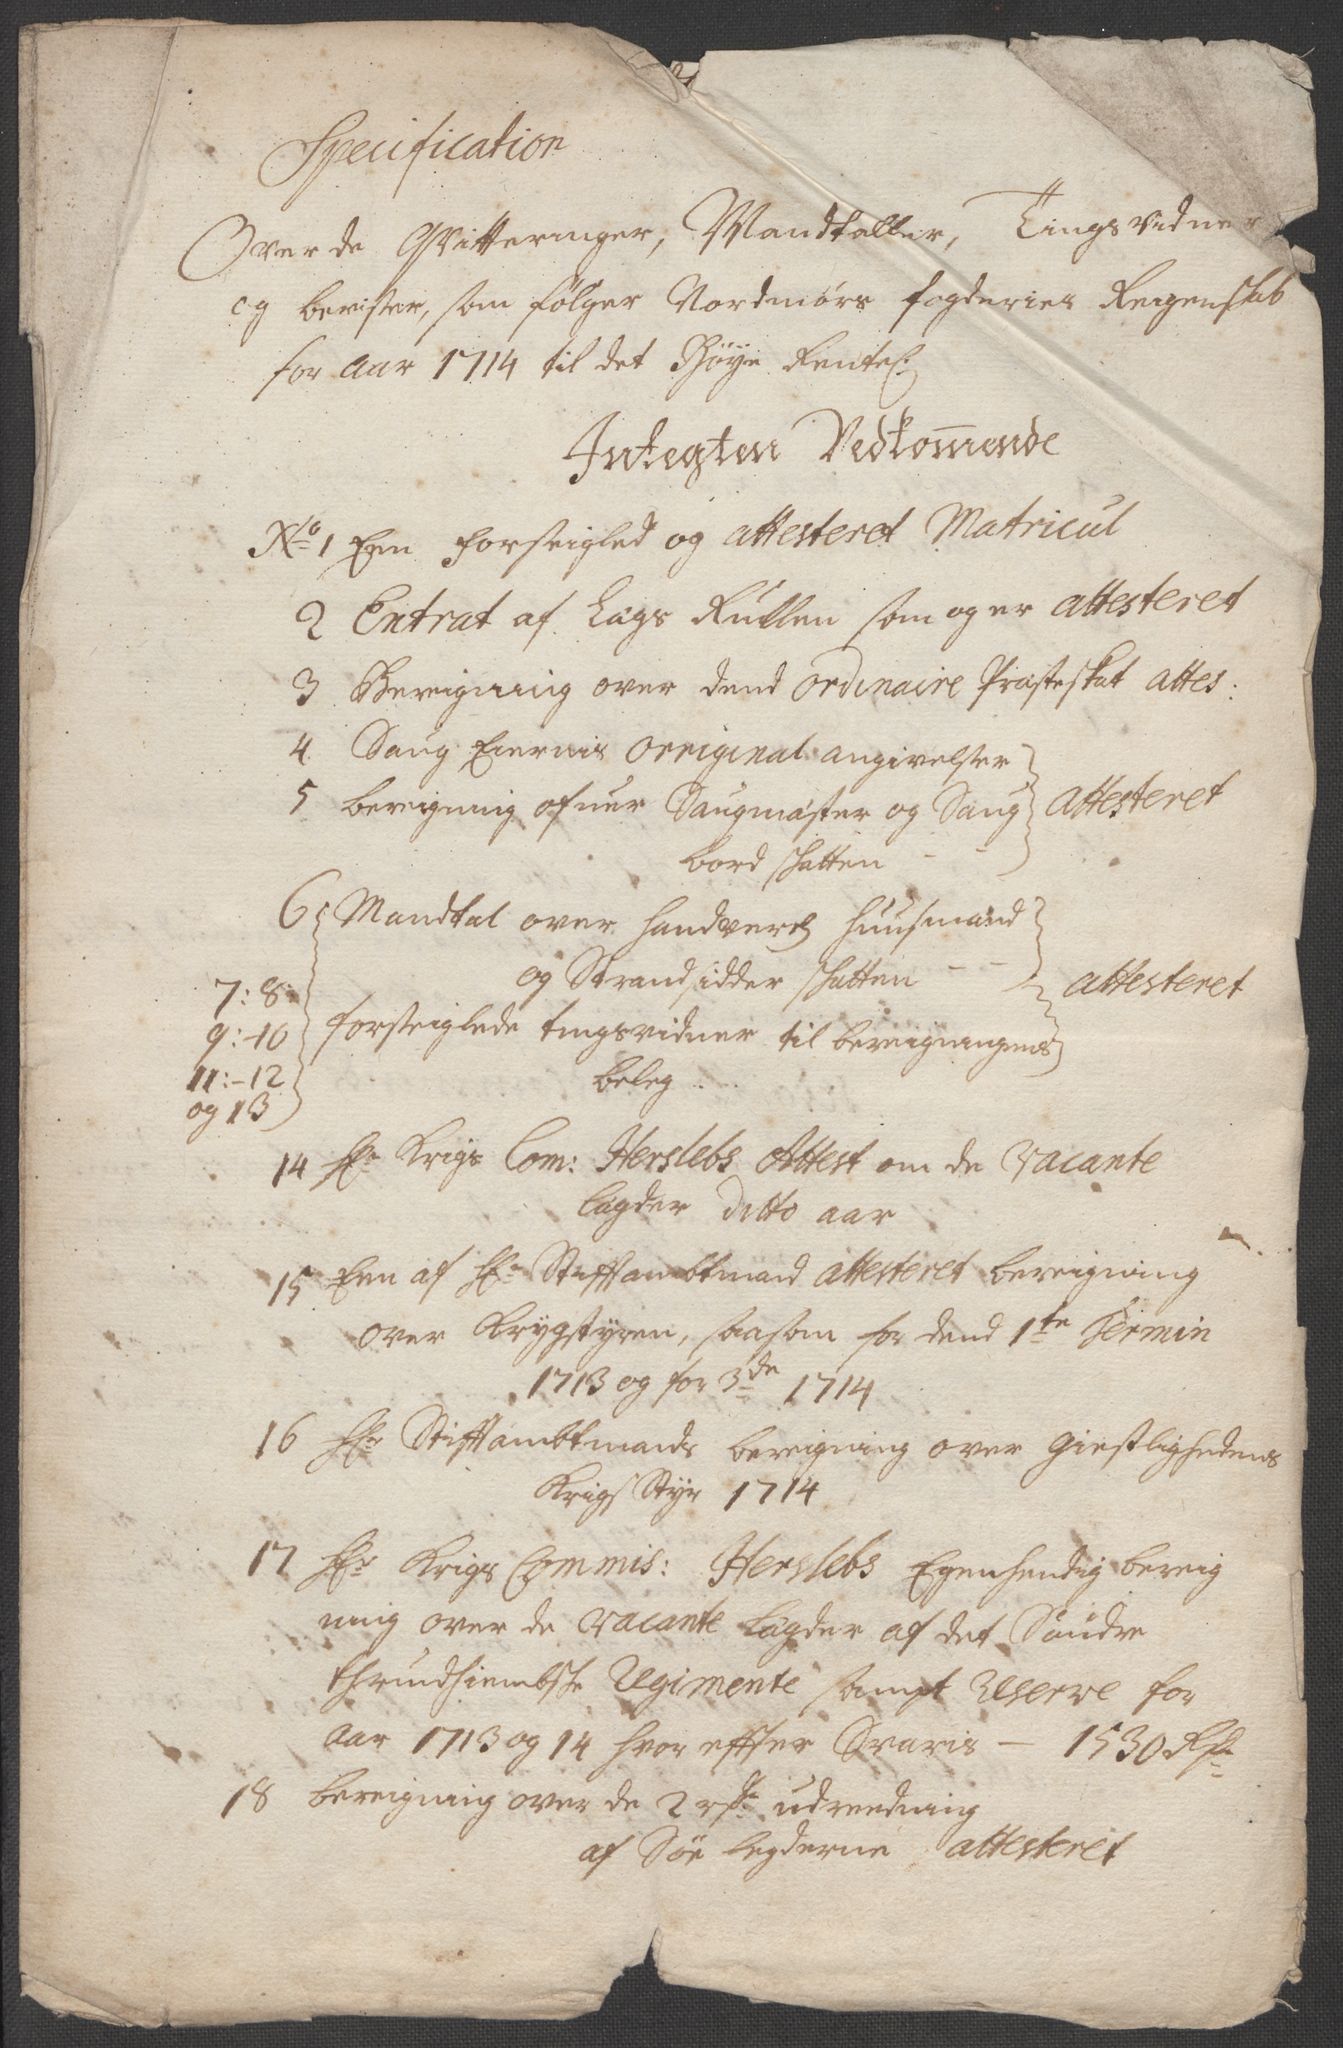 Specification
Over de Qvitteringer, Mandtaller, Tingsvidner
og beviser, som følger Nordmørs fogderies Reigenskab
for Aar 1714 til det Høye Rente C:
Integten Vedkom̄ende
No 1 Een forseigled og attesteret Matricul
2 Extrat af Lags Rullen som og er attesteret
3 Bereigning over dend ordinaire Præsteskat attes:
4 Saug Eiernis original angivelser
5 bereigning ofuer Saugmæster og Saug attesteret
bord skatten - -
6 Mandtal over handverch huusmænd
og Strandsidder skatten - - attesteret
7: 8:
forseiglede tingsvidner til bereigningens
9: -10
beleg
11: -12
og 13
14 Hr Krigs Com: Herslebs Attest om de vacante
lægder ditto aar
15 Een af Hr Stifftambtmand attesteret bereigning
over Krygstyren, saasom for dend 1te Termin
1713 og for 3de 1714
16 Hr Stifftambtmands bereigning over Giestlighedens
Krigs Styr 1714
17 Hr Krigs Commis: Herslebs Egenhendig bereig
ning over de vacante lægder af det Søndre
thrundhiembske Regimente sampt Reserve for
Aar 1713 og 14 hvor effter Svaris - 1530 Rdr
18 bereigning over de 2 rdr udreedning
af Søe legderne attesteret